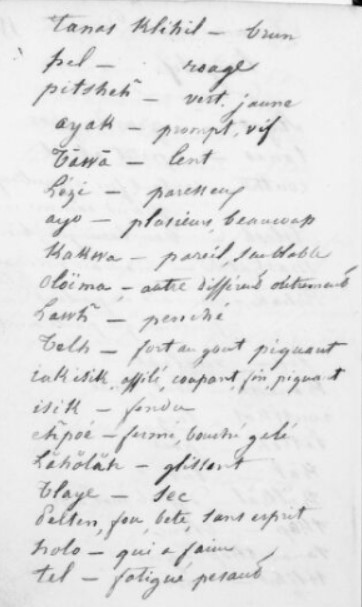 tanas klihil – brun
pel – rouge
pitsheh – vert, jaune
ayak – prompt, vif
Tăwă – lent
Lézé – paresseux
ayo – plusieurs, beaucoup
Kakwa – pareil, semblable
Oloïma – autre différend autrement
Lawh – penché
Telh – fort au gout piquant
iakisik, affilé, coupant, fin, piquant
isik – fendu
ehpoé – fermé, bouché gelé
Lăhŏlăh – glissant
Tlaye – sec
Pelten, fou, bete, sans esprit
holo – qui a faim
tel – fatigué pesand